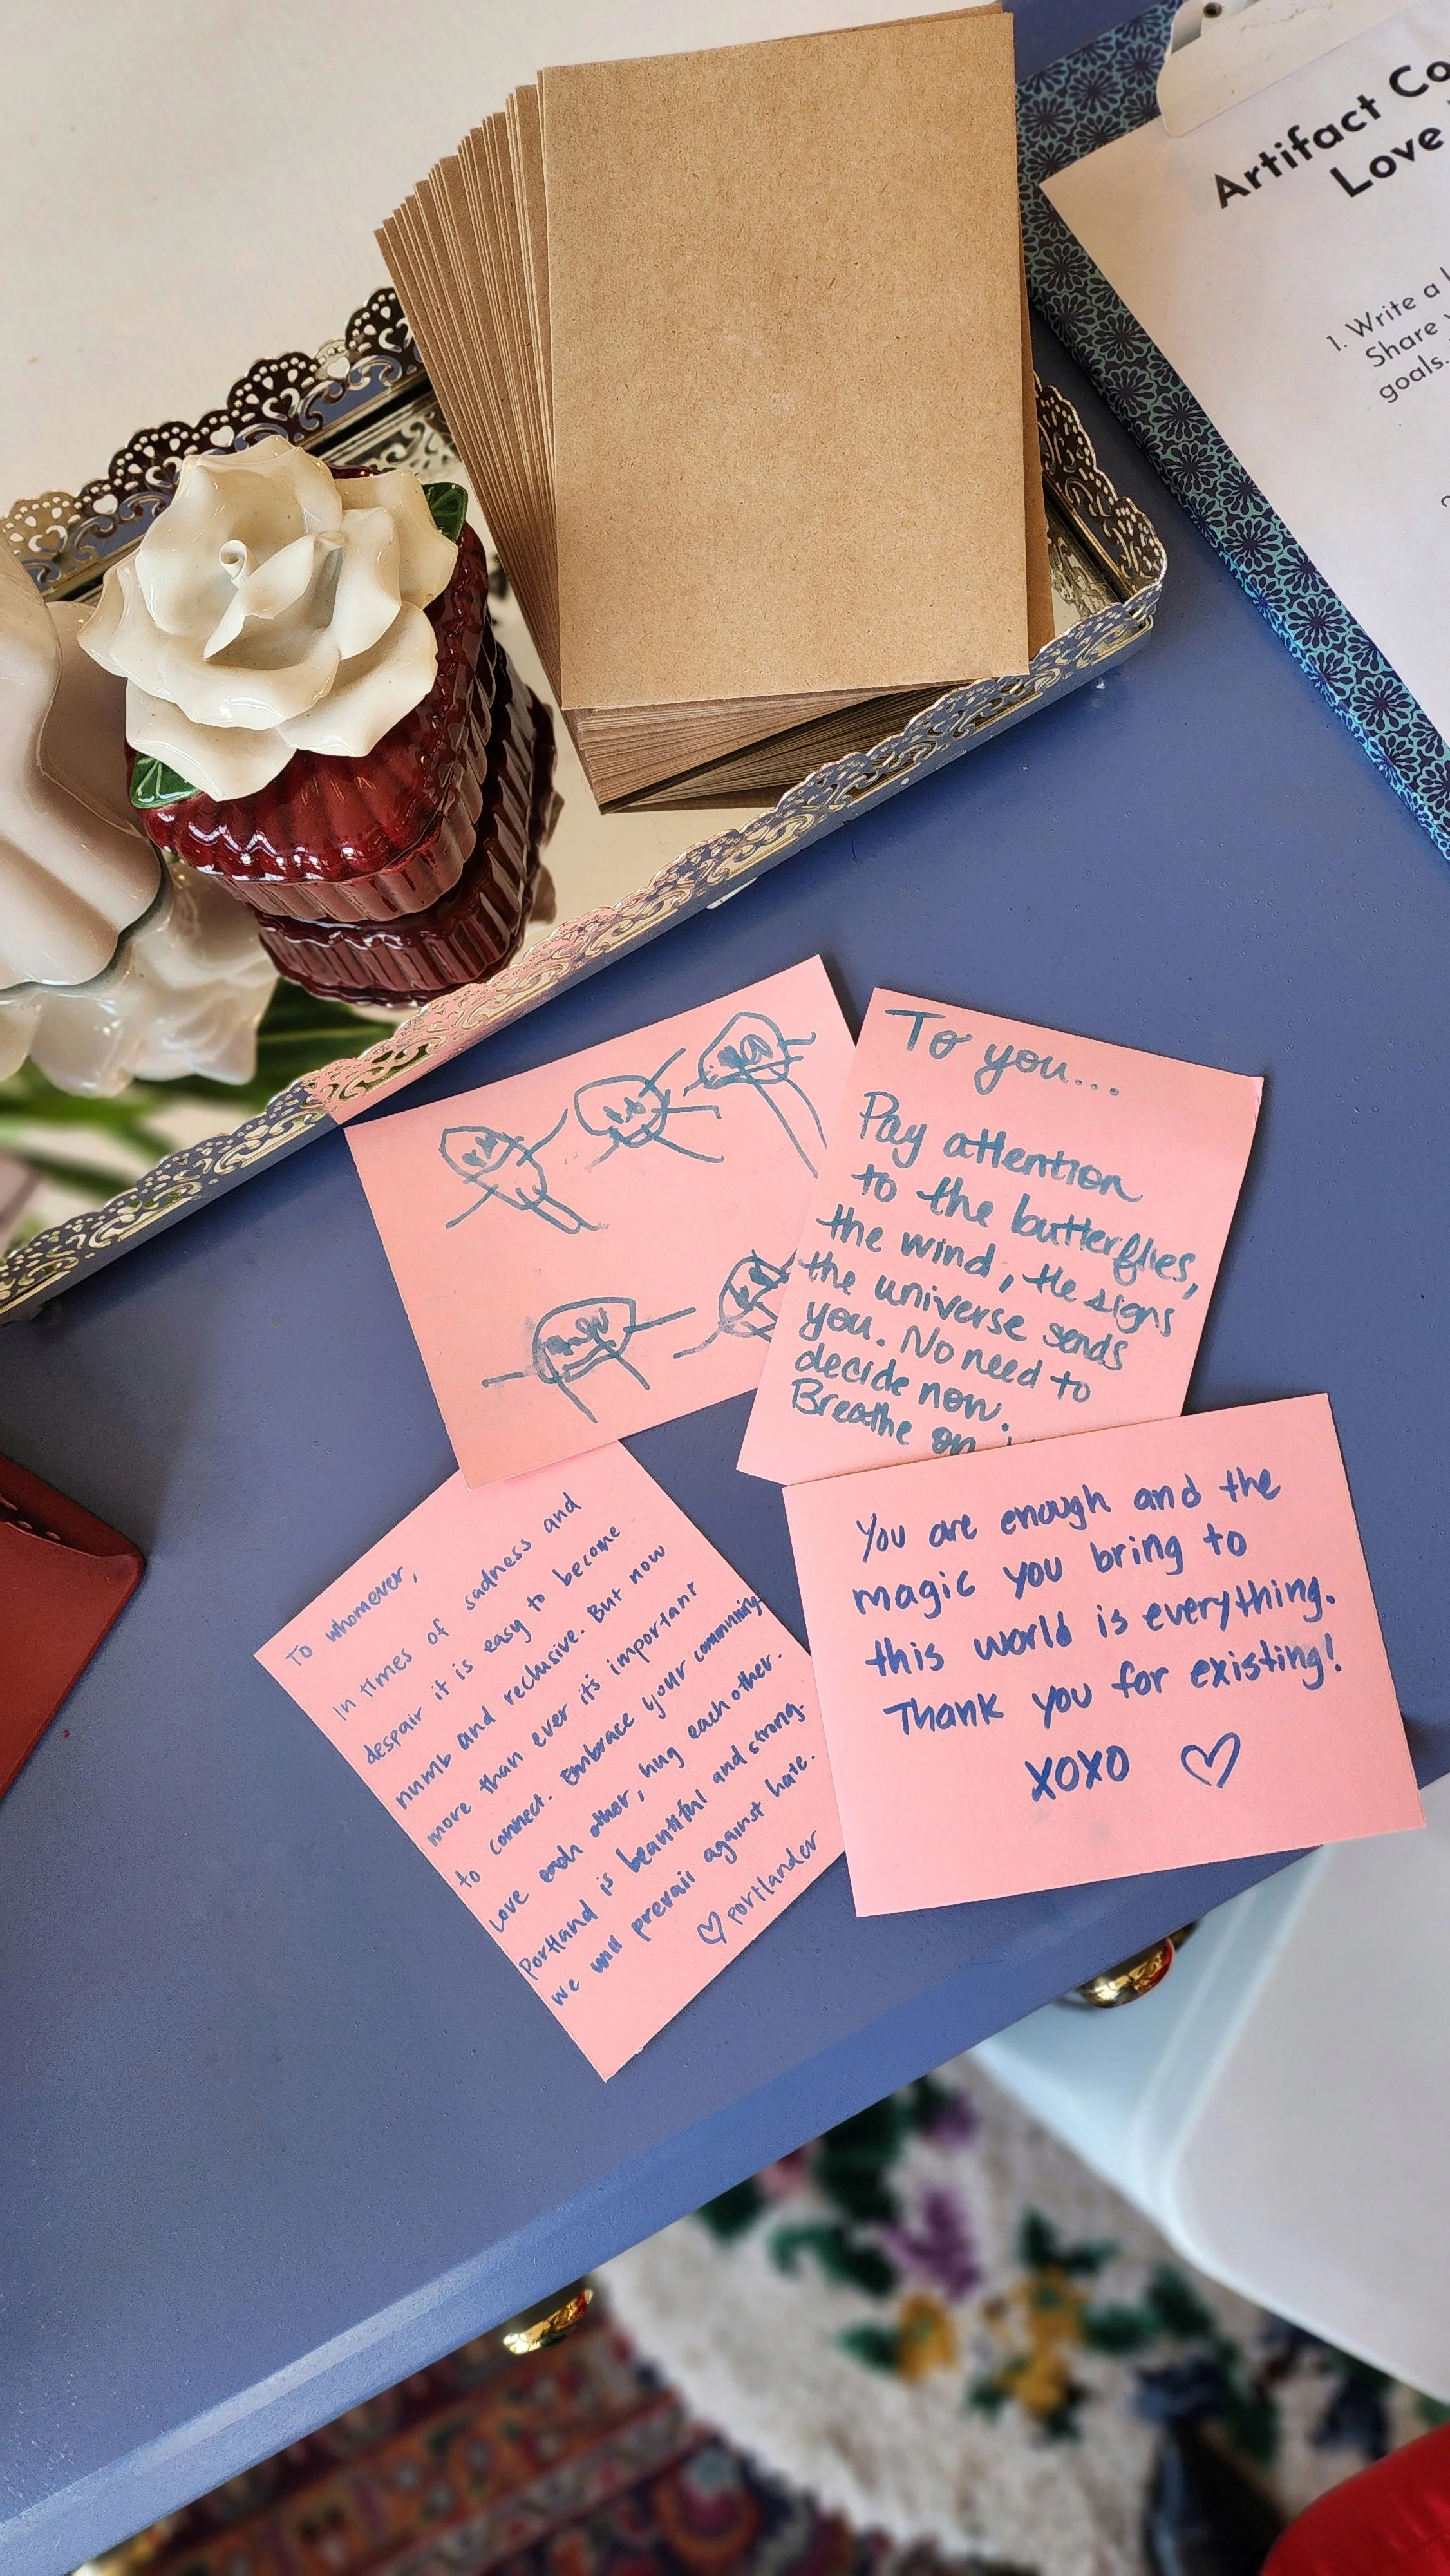 Artifact Co
Love
1. Write a
Share
goals.
To you...
Pay attention
to the butterflies,
the wind, the signs
the universe sends
you. No need to
decide now.
Breathe on
To whomever,
In times of sadness and
despair it is easy to become
numb and reclusive. But now
more than ever it's important
to connect. Embrace your community.
Love each other, hug each other.
Portland is beautiful and strong.
we will prevail against hate.
♡ portlander
You are enough and the
magic you bring to
this world is everything.
Thank you for existing!
XOXO ♡